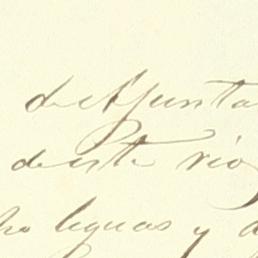 de Ajunta
deste rio
ho leguas y d